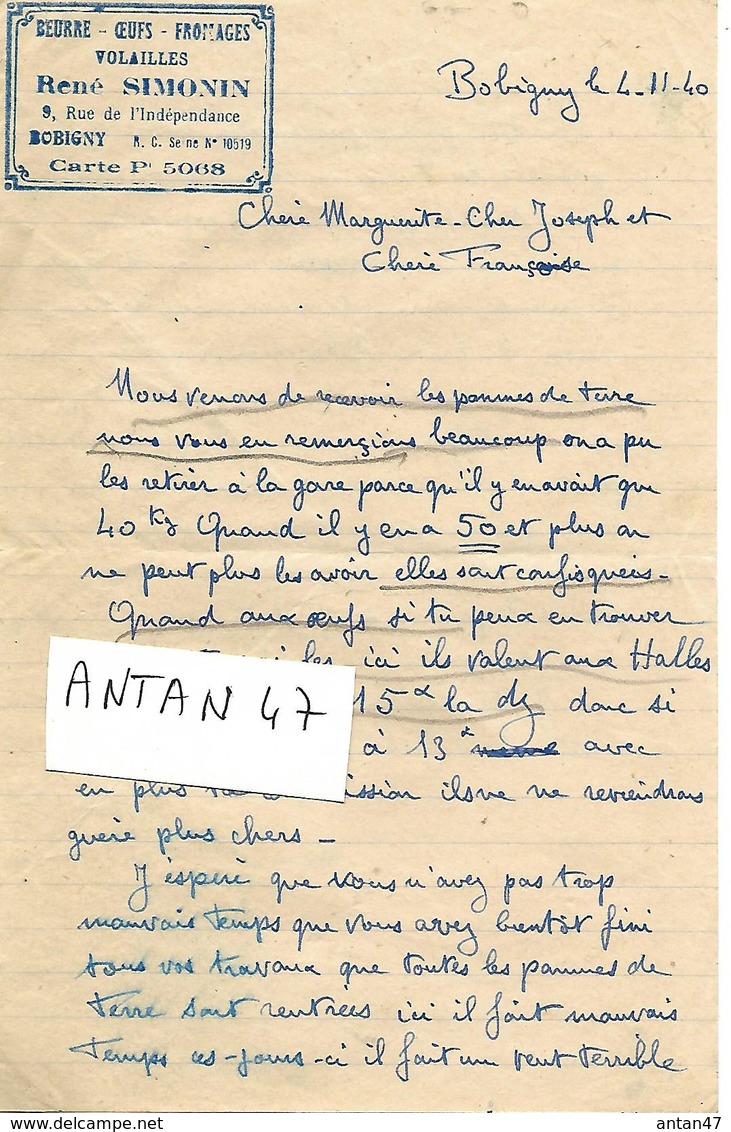 BEURRE - ŒUFS - FROMAGES
VOLAILLES
René SIMONIN
9, Rue de l'Indépendance
BOBIGNY R. C. Seine N° 10519
Carte Pˡ 5068
Bobigny le 4-11-40
Chère Marguerite - Cher Joseph et
Chère Françoise
Nous venons de recevoir les pommes de terre
nous vous en remerçions beaucoup on a pu
les retirer à la gare parce qu'il y en avait que
40 Kg Quand il y en a 50 et plus on
ne peut plus les avoir elles sont confisquées -
Quand aux œufs si tu peux en trouver
les ici ils valent aux Halles
15 la dz donc si
à 13 avec
en plus ission ils ne reviendrons
guère plus chers -
J'espère que vous n'avez pas trop
mauvais temps que vous avez bientôt fini
tous vos travaux que toutes les pommes de
terre sont rentrées ici il fait mauvais
temps ces-jours-ci il fait un vent terrible
ANTAN 47
antan47